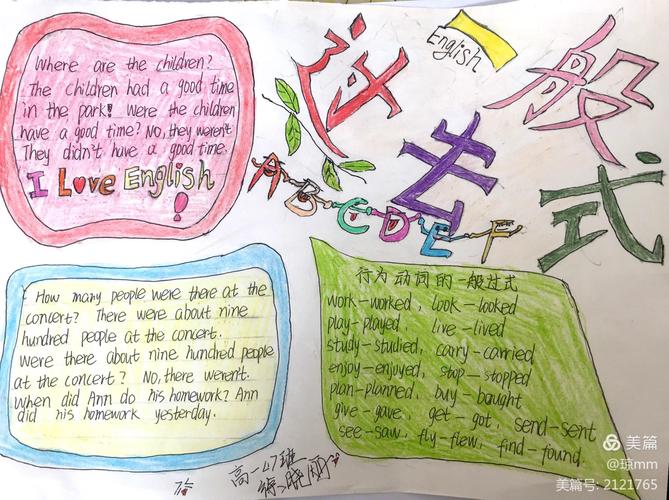 Where are the children?
The children had a good time
in the park! Were the children
have a good time? No, they weren't
They didn't have a good time.
I Love English!
过去
一般式
English
A B C D E F
How many people were there at the
concert? There were about nine
hundred people at the concert.
Were there about nine hundred people
at the concert? No, there weren't.
when did Ann do his homework? Ann
did his homework yesterday.
行为动词的一般过式
work-worked, look-looked
play-played, live-lived
study-studied, carry-carried
enjoy-enjoyed, stop-stopped
plan-planned, buy-bought
give-gave, get-got, send-sent
see-saw, fly-flew, find-found.
高一47班
晓雨
美篇
@琼mm
美篇号: 2121765